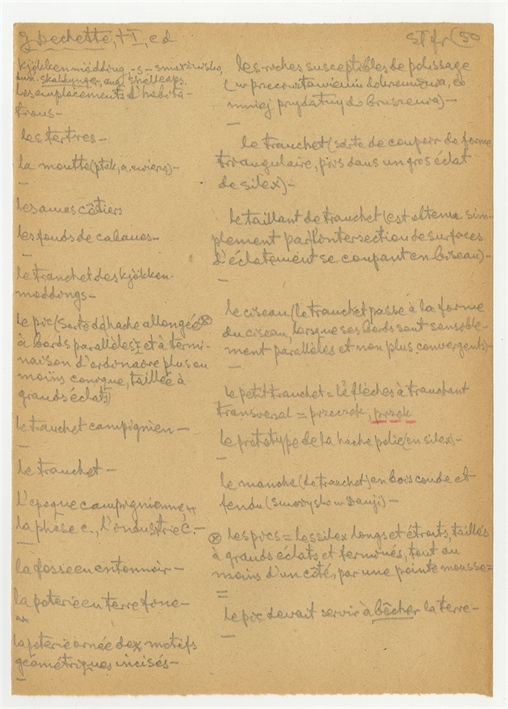 J. Dechette, t I, c d
ST fr (50
Kjökkenmödding - s - smietnisko,
duń. skaldynger, ang. shellheaps.
les emplacements d'habita-
tions -
les tertres -
la moutte (ptck, a, wiens) -
les amas côtiers
les fonds de cabanes -
le tranchet des kjökken-
moddings -
le pic (sorte de hache allongée ⊗
à bords parallèles et à termi-
naison d'ordinaire plus ou
moins conique, taillée à
grands éclats)
le tranchet campignien -
le tranchet -
l'epoque campignienne,
la phase c., l'industrie c. -
la fosse en entonnoir -
la poterie en terre fine -
la poterie ornée de motifs
géométriques incisés -
les roches susceptibles de polissage
(w przeciwstawieniu do krzemienia, co
mniej przydatny do krzesania) -
le tranchet (sorte de coupoir de forme
triangulaire, pris dans un gros éclat
de silex) -
le taillant de tranchet (est obtenu sim-
plement par l'intersection de surfaces
d'éclatement se coupant en biseau) -
le ciseau (le tranchet passe à la forme
du ciseau, lorsque ses bords sont sensible-
ment parallèles et non plus convergents) -
le petit tranchet = la flèches à tranchant
transversal = przecrok, prosek
le prototype de la hache polie (en silex) -
le manche (de tranchet) en bois coudé et
fendu (Smorysko w Danji) -
⊗ les pics = les silex longs et étroits, taillés
à grands éclats et terminés, tout au
moins d'un côté, par une pointe mousse =
le pic devait servir à bêcher la terre -